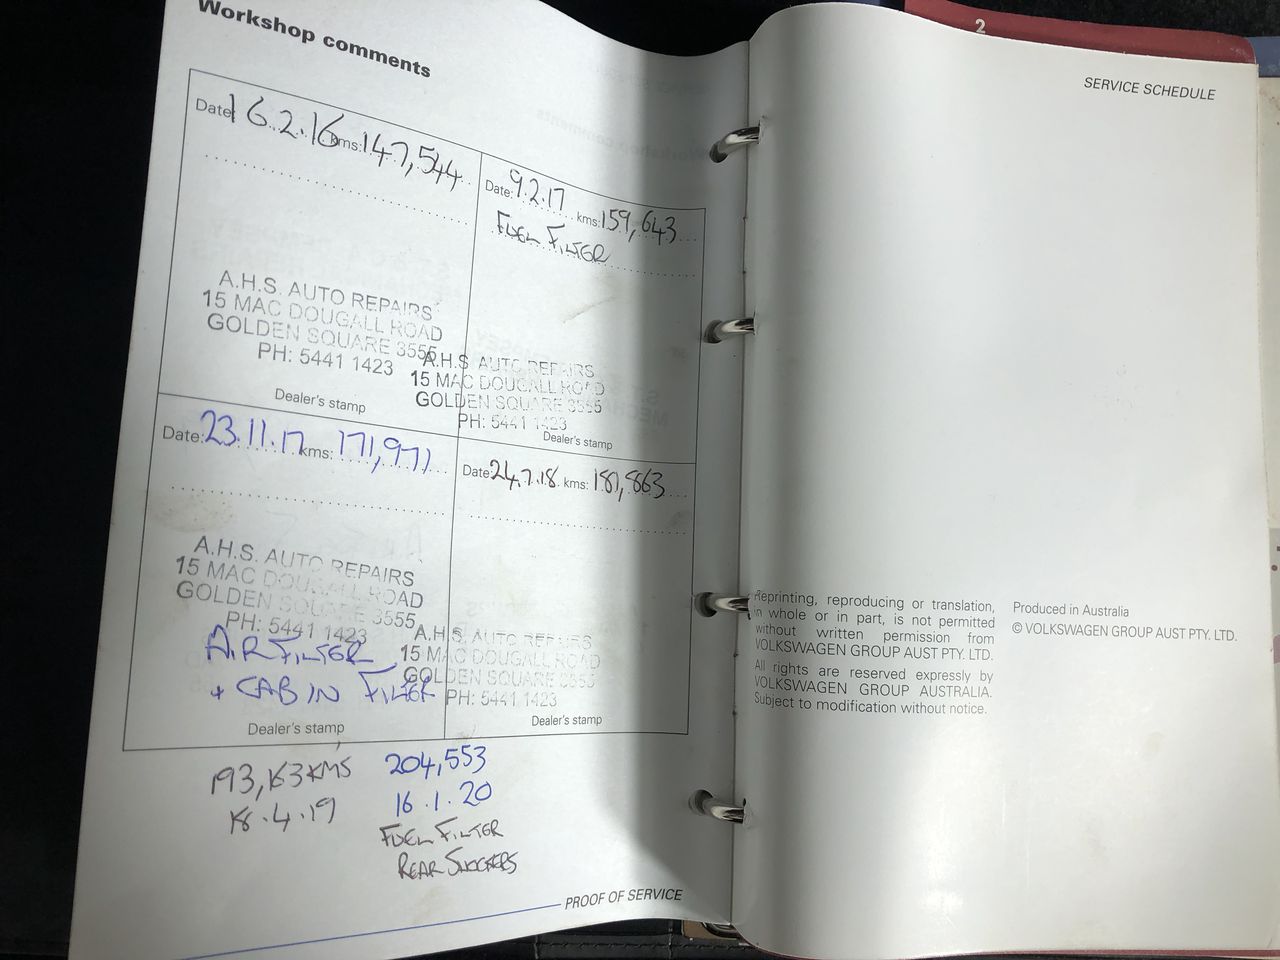 Workshop comments
Date 16.2.16 kms: 147,544
A.H.S. AUTO REPAIRS
15 MAC DOUGALL ROAD
GOLDEN SQUARE 3555
PH: 5441 1423
Dealer's stamp
Date: 9.2.17 kms: 159,643
FUEL FILTER
A.H.S AUTO REPAIRS
15 MAC DOUGALL ROAD
GOLDEN SQUARE 3555
PH: 5441 1423
Dealer's stamp
Date: 23.11.17 kms: 171,971
A.H.S. AUTO REPAIRS
15 MAC DOUGALL ROAD
GOLDEN SQUARE 3555
PH: 5441 1423
AIR FILTER
+ CABIN FILTER
Dealer's stamp
Date: 24.7.18 kms: 181,863
A.H.S. AUTO REPAIRS
15 MAC DOUGALL ROAD
GOLDEN SQUARE 3555
PH: 5441 1423
Dealer's stamp
KMS
18.4.19
204,553
16.1.20
FUEL FILTER
REAR SHOCKERS
PROOF OF SERVICE
2
SERVICE SCHEDULE
Reprinting, reproducing or translation,
in whole or in part, is not permitted
without written permission from
VOLKSWAGEN GROUP AUST PTY. LTD.
All rights are reserved expressly by
VOLKSWAGEN GROUP AUSTRALIA.
Subject to modification without notice.
Produced in Australia
© VOLKSWAGEN GROUP AUST PTY. LTD.